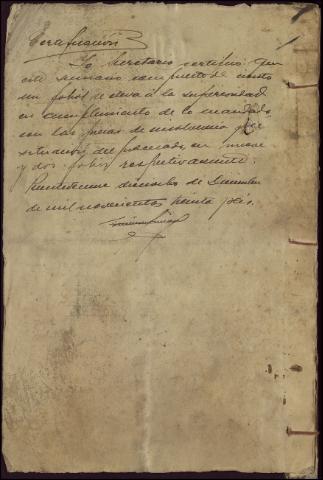 Certificación
Yo Secretario certifico que
este sumario compuesto de ciento
un folios se eleva a la superioridad
en cumplimiento de lo mandado
con las piezas de insolvencia y
situación del procesado, en nueve
y dos folios respectivamente.
dieciocho de Diciembre
de mil novecientos treinta y seis.